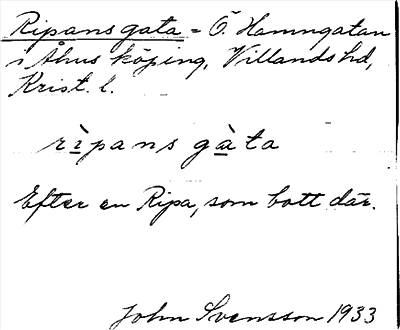 Ripans gata = Ö. Hamngatan
i Åhus köping, Villands hd,
Krist. l.
rìpans gàta
Efter en Ripa, som bott där.
John Svensson 1933